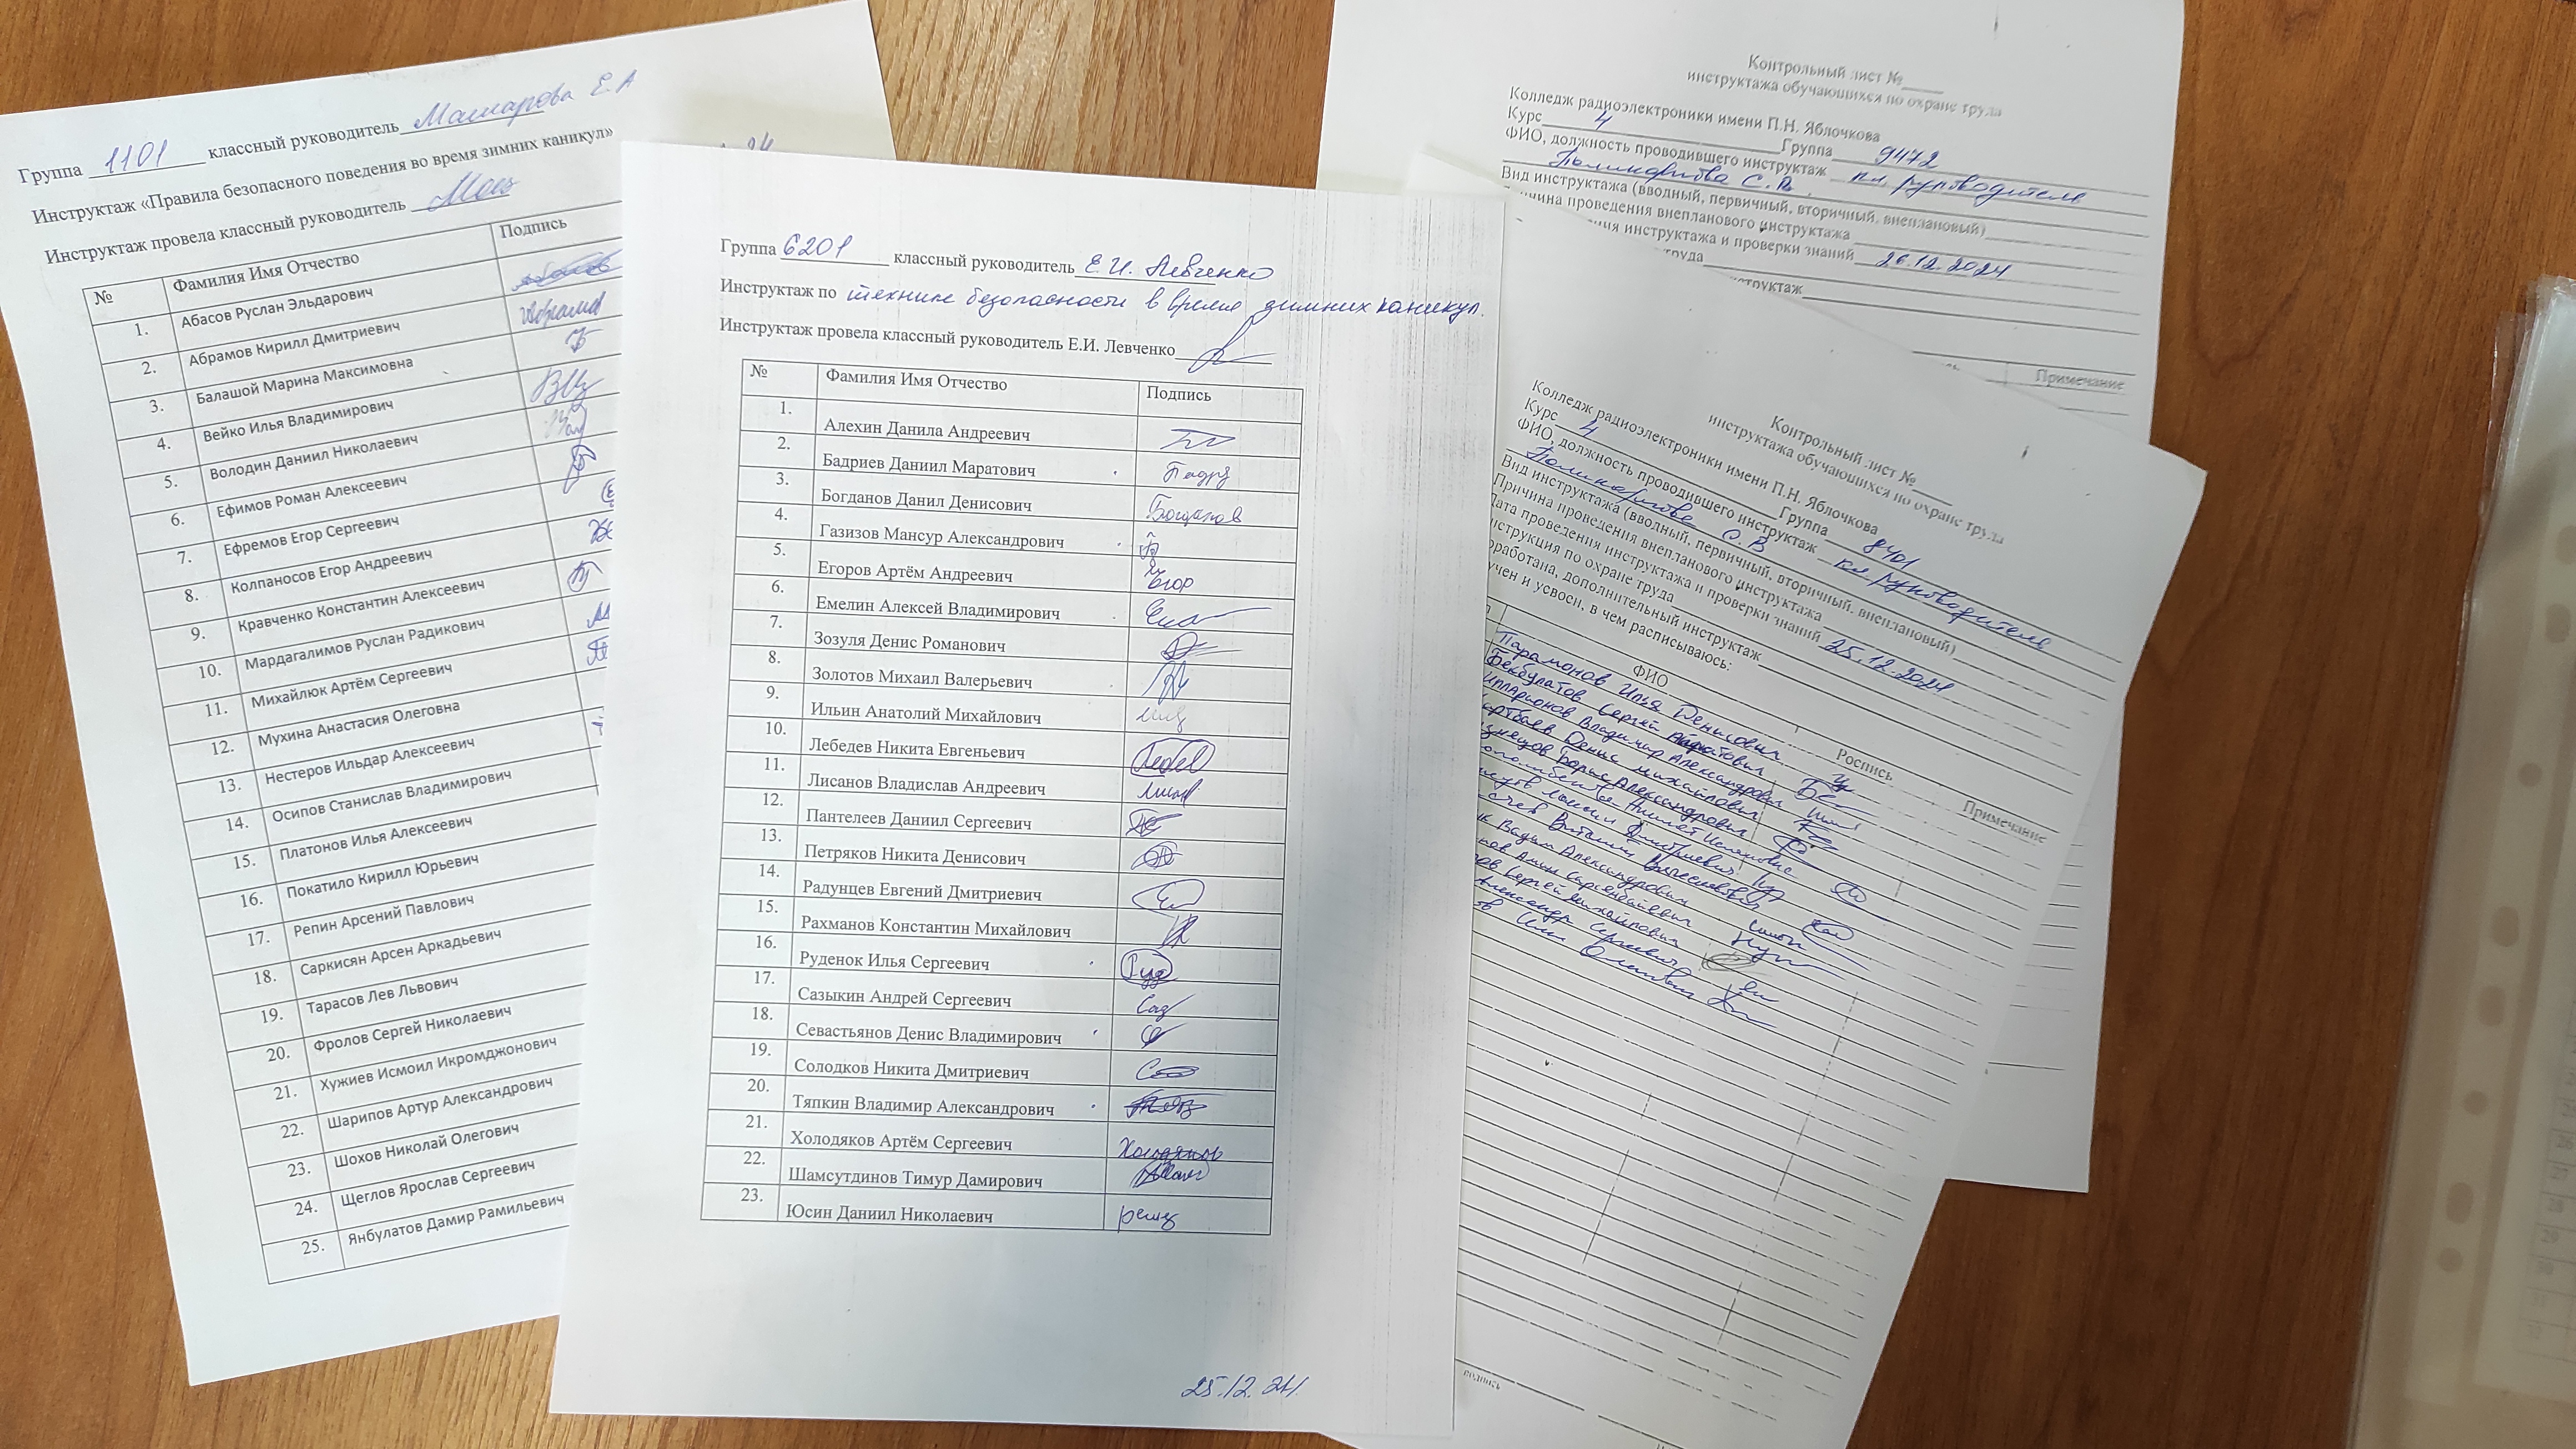 Группа 1101 классный руководитель Машарова Е.А
Инструктаж «Правила безопасного поведения во время зимних каникул»
Инструктаж провела классный руководитель
№ Фамилия Имя Отчество Подпись
1. Абасов Руслан Эльдарович
2. Абрамов Кирилл Дмитриевич
3. Балашой Марина Максимовна
4. Вейко Илья Владимирович
5. Володин Даниил Николаевич
6. Ефимов Роман Алексеевич
7. Ефремов Егор Сергеевич
8. Колпаносов Егор Андреевич
9. Кравченко Константин Алексеевич
10. Мардагалимов Руслан Радикович
11. Михайлюк Артём Сергеевич
12. Мухина Анастасия Олеговна
13. Нестеров Ильдар Алексеевич
14. Осипов Станислав Владимирович
15. Платонов Илья Алексеевич
16. Покатило Кирилл Юрьевич
17. Репин Арсений Павлович
18. Саркисян Арсен Аркадьевич
19. Тарасов Лев Львович
20. Фролов Сергей Николаевич
21. Хужиев Исмоил Икромджонович
22. Шарипов Артур Александрович
23. Шохов Николай Олегович
24. Щеглов Ярослав Сергеевич
25. Янбулатов Дамир Рамильевич
Группа 6201 классный руководитель Е.И. Левченко
Инструктаж по технике безопасности в время зимних каникул.
Инструктаж провела классный руководитель Е.И. Левченко
№ Фамилия Имя Отчество Подпись
1. Алехин Данила Андреевич
2. Бадриев Даниил Маратович
3. Богданов Данил Денисович Богданов
4. Газизов Мансур Александрович
5. Егоров Артём Андреевич Егор
6. Емелин Алексей Владимирович
7. Зозуля Денис Романович
8. Золотов Михаил Валерьевич
9. Ильин Анатолий Михайлович
10. Лебедев Никита Евгеньевич
11. Лисанов Владислав Андреевич
12. Пантелеев Даниил Сергеевич
13. Петряков Никита Денисович
14. Радунцев Евгений Дмитриевич
15. Рахманов Константин Михайлович
16. Руденок Илья Сергеевич
17. Сазыкин Андрей Сергеевич
18. Севастьянов Денис Владимирович
19. Солодков Никита Дмитриевич
20. Тяпкин Владимир Александрович
21. Холодяков Артём Сергеевич Холодяков
22. Шамсутдинов Тимур Дамирович
23. Юсин Даниил Николаевич
25.12.24.
Контрольный лист №
инструктажа обучающихся по охране труда
Колледж радиоэлектроники имени П.Н. Яблочкова
Курс 4 Группа 9472
ФИО, должность проводившего инструктаж кл. руководитель
С.В.
Вид инструктажа (вводный, первичный, вторичный, внеплановый)
проведения внепланового инструктажа
инструктажа и проверки знаний 26.12.2024
труда
инструктаж
Примечание
Контрольный лист №
инструктажа обучающихся по охране труда
Колледж радиоэлектроники имени П.Н. Яблочкова
Курс 4 Группа 8401
ФИО, должность проводившего инструктаж кл руководитель
С.В
Вид инструктажа (вводный, первичный, вторичный, внеплановый)
Причина проведения внепланового инструктажа
Дата проведения инструктажа и проверки знаний 25.12.2024
по охране труда
дополнительный инструктаж
и усвоен, в чем расписываюсь:
ФИО Роспись Примечание
Парамонов Илья Денисович
Бекбулатов Сергей
Владимир Александрович
Денис Михайлович
Борис Александрович
Дмитриевич
Виталий Вячеславович
Вадим Александрович
Сергей Михайлович
Александр Сергеевич
подпись